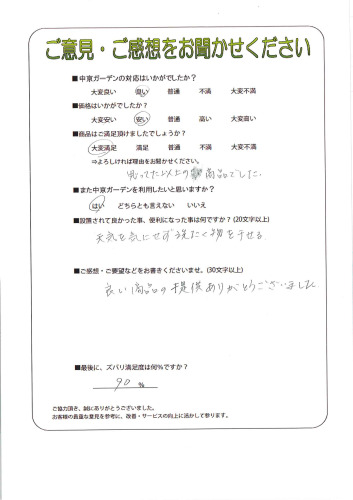 ご意見・ご感想をお聞かせください
■中京ガーデンの対応はいかがでしたか?
大変良い 良い 普通 不満 大変不満
■価格はいかがでしたか?
大変安い 安い 普通 高い 大変高い
■商品はご満足頂けましたでしょうか?
大変満足 満足 普通 不満 大変不満
⇒よろしければ理由をお聞かせください。
思ってた以上の商品でした。
■また中京ガーデンを利用したいと思いますか?
はい どちらとも言えない いいえ
■設置されて良かった事、便利になった事は何ですか? (20文字以上)
天気を気にせず洗たく物を干せる
■ご感想・ご要望などをお書きくださいませ。(30文字以上)
良い商品の提供ありがとうございました
■最後に、ズバリ満足度は何%ですか?
90 %
ご協力頂き、誠にありがとうございました。
お客様の貴重な意見を参考に、改善・サービスの向上に活かして参ります。